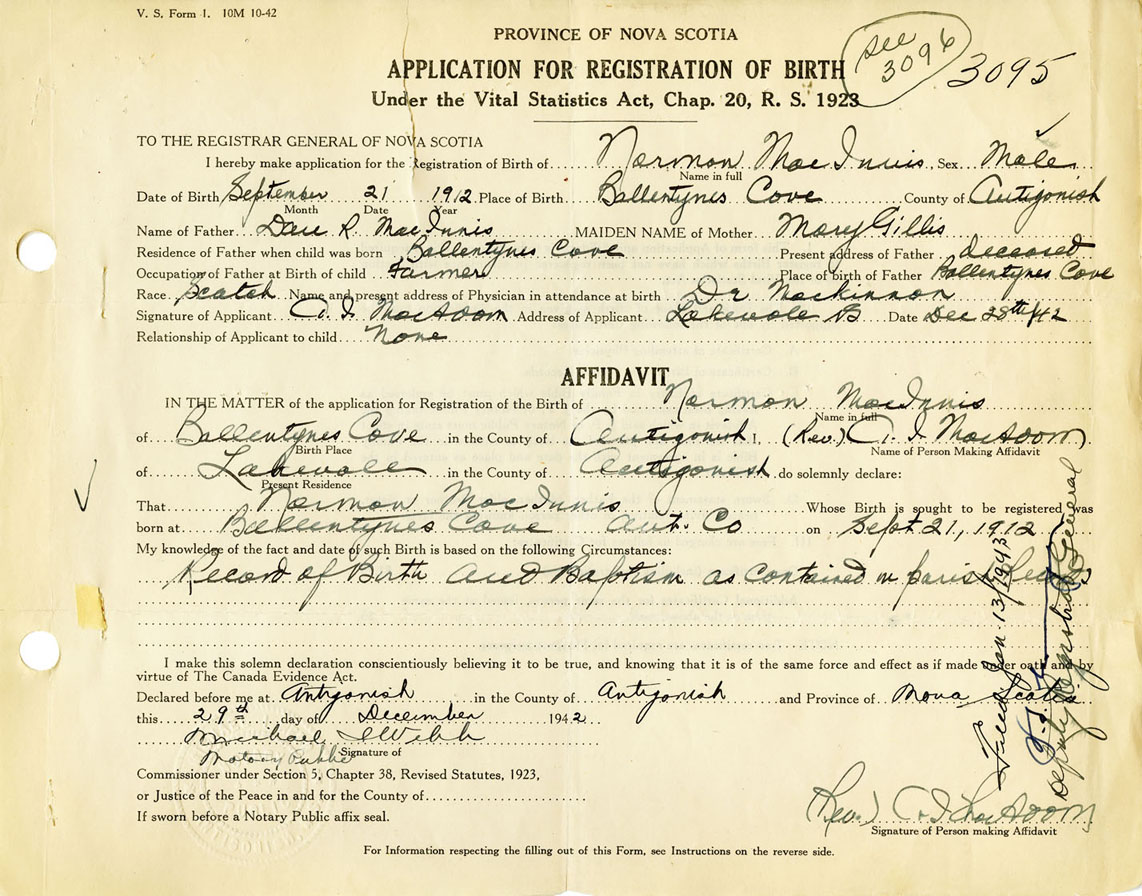 V. S. Form 1. 10M 10-42
PROVINCE OF NOVA SCOTIA
see 3096
3095
APPLICATION FOR REGISTRATION OF BIRTH
Under the Vital Statistics Act, Chap. 20, R. S. 1923
TO THE REGISTRAR GENERAL OF NOVA SCOTIA
I hereby make application for the Registration of Birth of Norman MacInnis Sex Male
Name in full
Date of Birth September 21 1912 Place of Birth Ballentynes Cove County of Antigonish
Month Date Year
Name of Father Dan R. MacInnis MAIDEN NAME of Mother Mary Gillis
Residence of Father when child was born Ballentynes Cove Present address of Father deceased
Occupation of Father at Birth of child Farmer Place of birth of Father Ballentynes Cove
Race Scotch Name and present address of Physician in attendance at birth Dr Mackinnon
Signature of Applicant MacAdam Address of Applicant Lakevale Date Dec 28th/42
Relationship of Applicant to child None
AFFIDAVIT
IN THE MATTER of the application for Registration of the Birth of Norman MacInnis
Name in full
of Ballentynes Cove in the County of Antigonish I, (Rev.) MacAdam
Birth Place Name of Person Making Affidavit
of Lakevale in the County of Antigonish do solemnly declare:
Present Residence
That Norman MacInnis Whose Birth is sought to be registered was
born at Ballentynes Cove Ant. Co on Sept 21, 1912
My knowledge of the fact and date of such Birth is based on the following Circumstances:
Record of Birth and Baptism as contained in parish
I make this solemn declaration conscientiously believing it to be true, and knowing that it is of the same force and effect as if made under oath and by
virtue of The Canada Evidence Act.
Declared before me at Antigonish in the County of Antigonish and Province of Nova Scotia
this 29th day of December 1942
Michael Webb
Notary Public Signature of
Commissioner under Section 5, Chapter 38, Revised Statutes, 1923,
or Justice of the Peace in and for the County of
If sworn before a Notary Public affix seal.
(Rev.) MacAdam
Signature of Person making Affidavit
For Information respecting the filling out of this Form, see Instructions on the reverse side.
Filed Jan. 13/1943
Deputy Registrar General